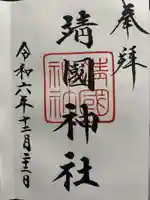 奉拝
靖國神社
靖國
神社
令和六年十二月二十二日